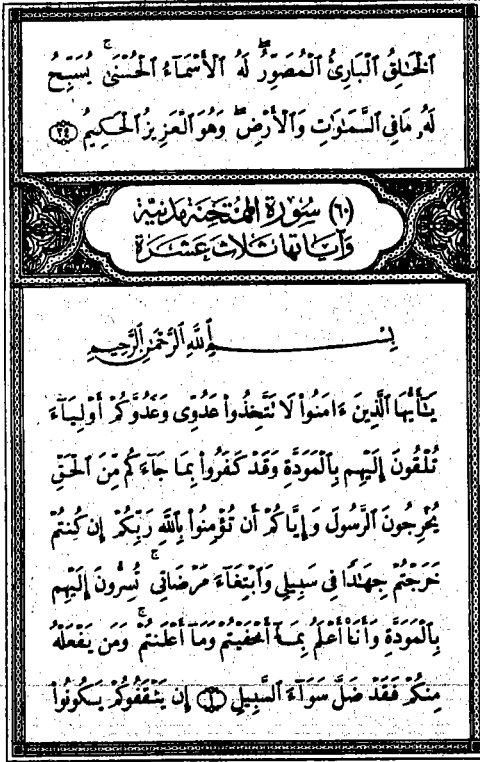 ٱلْخَٰلِقُ ٱلْبَارِئُ ٱلْمُصَوِّرُ ۖ لَهُ ٱلْأَسْمَآءُ ٱلْحُسْنَىٰ ۚ يُسَبِّحُ
لَهُۥ مَا فِى ٱلسَّمَٰوَٰتِ وَٱلْأَرْضِ ۖ وَهُوَ ٱلْعَزِيزُ ٱلْحَكِيمُ ٢٤
(٦٠) سُورَة المُمتَحنَة مَدنيّة
وَآيَاتهَا ثَلَاثَ عَشرَة
بِسْمِ ٱللَّهِ ٱلرَّحْمَٰنِ ٱلرَّحِيمِ
يَٰٓأَيُّهَا ٱلَّذِينَ ءَامَنُوا۟ لَا تَتَّخِذُوا۟ عَدُوِّى وَعَدُوَّكُمْ أَوْلِيَآءَ
تُلْقُونَ إِلَيْهِم بِٱلْمَوَدَّةِ وَقَدْ كَفَرُوا۟ بِمَا جَآءَكُم مِّنَ ٱلْحَقِّ
يُخْرِجُونَ ٱلرَّسُولَ وَإِيَّاكُمْ أَن تُؤْمِنُوا۟ بِٱللَّهِ رَبِّكُمْ إِن كُنتُمْ
خَرَجْتُمْ جِهَٰدًا فِى سَبِيلِى وَٱبْتِغَآءَ مَرْضَاتِى ۚ تُسِرُّونَ إِلَيْهِم
بِٱلْمَوَدَّةِ وَأَنَا۠ أَعْلَمُ بِمَآ أَخْفَيْتُمْ وَمَآ أَعْلَنتُمْ ۚ وَمَن يَفْعَلْهُ
مِنكُمْ فَقَدْ ضَلَّ سَوَآءَ ٱلسَّبِيلِ ١ إِن يَثْقَفُوكُمْ يَكُونُوا۟